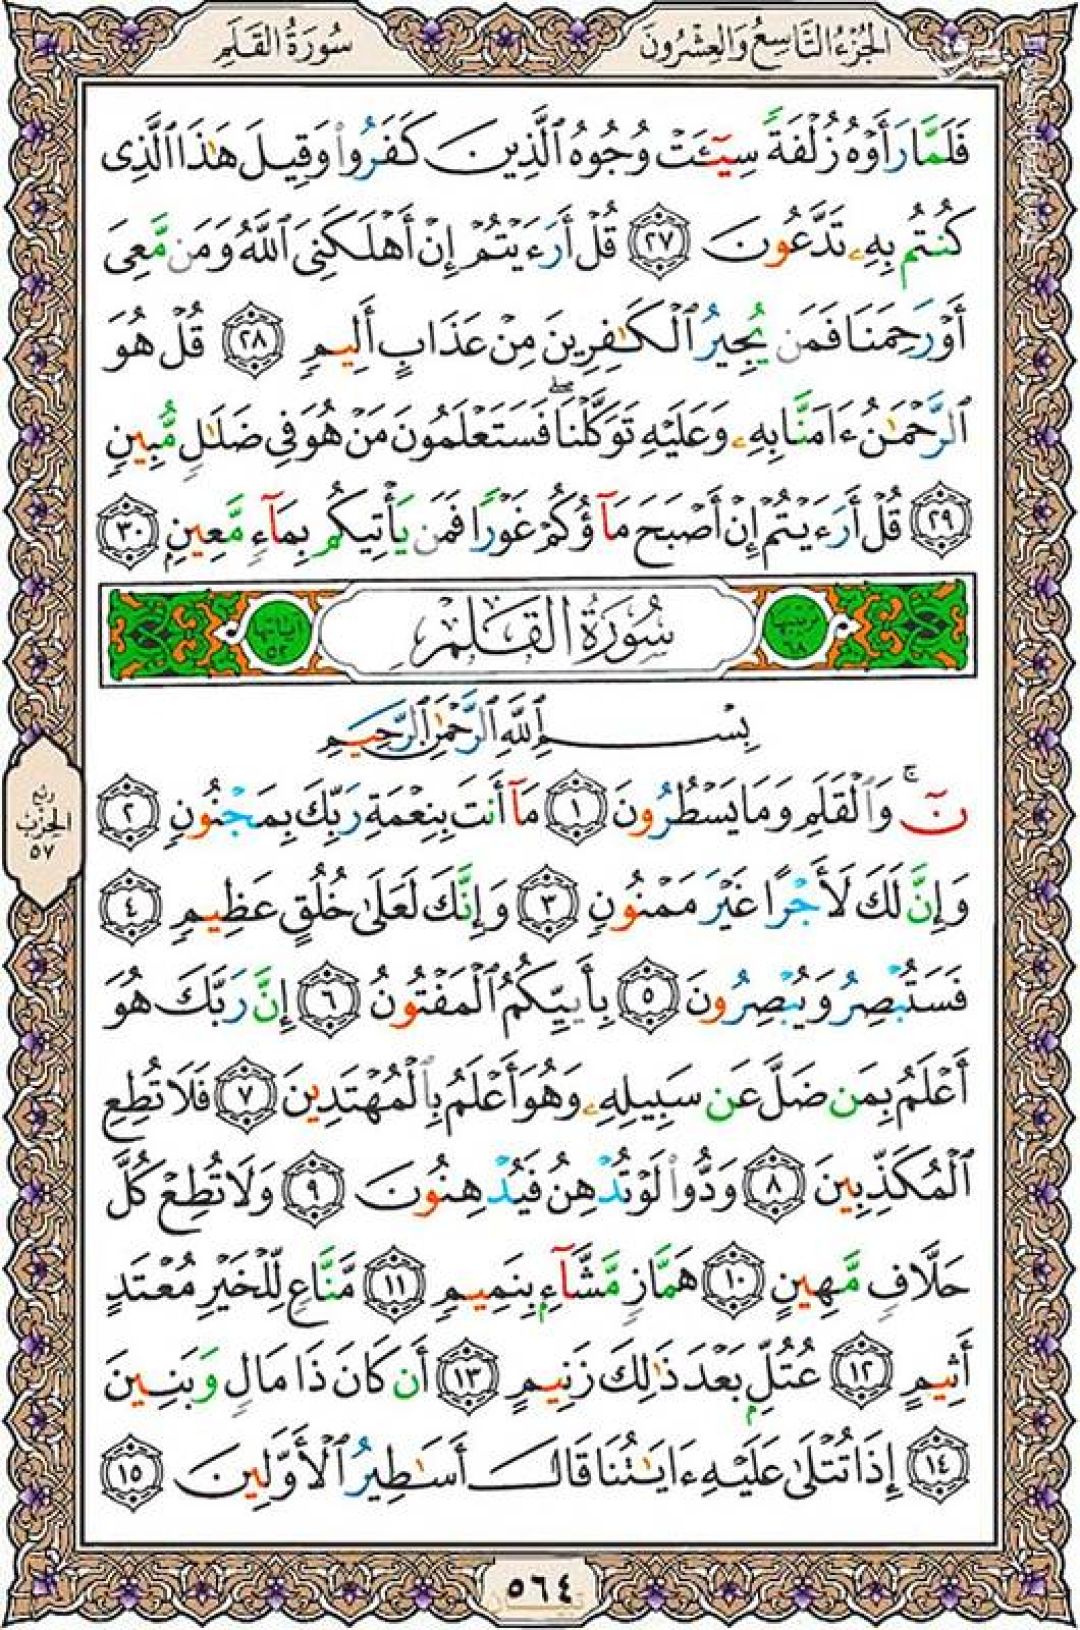 سُورَةُ القَلَمِ
الجُزْءُ التَّاسِعُ وَالعِشْرُونَ
فَلَمَّا رَأَوْهُ زُلْفَةً سِيٓـَٔتْ وُجُوهُ ٱلَّذِينَ كَفَرُوا۟ وَقِيلَ هَٰذَا ٱلَّذِى
كُنتُم بِهِۦ تَدَّعُونَ ٢٧ قُلْ أَرَءَيْتُمْ إِنْ أَهْلَكَنِىَ ٱللَّهُ وَمَن مَّعِىَ
أَوْ رَحِمَنَا فَمَن يُجِيرُ ٱلْكَٰفِرِينَ مِنْ عَذَابٍ أَلِيمٍ ٢٨ قُلْ هُوَ
ٱلرَّحْمَٰنُ ءَامَنَّا بِهِۦ وَعَلَيْهِ تَوَكَّلْنَا ۖ فَسَتَعْلَمُونَ مَنْ هُوَ فِى ضَلَٰلٍ مُّبِينٍ
٢٩ قُلْ أَرَءَيْتُمْ إِنْ أَصْبَحَ مَآؤُكُمْ غَوْرًا فَمَن يَأْتِيكُم بِمَآءٍ مَّعِينٍ ٣٠
ترتيبها ٦٨
سُورَةُ القَلَمِ
آياتها ٥٢
بِسْمِ ٱللَّهِ ٱلرَّحْمَٰنِ ٱلرَّحِيمِ
نٓ ۚ وَٱلْقَلَمِ وَمَا يَسْطُرُونَ ١ مَآ أَنتَ بِنِعْمَةِ رَبِّكَ بِمَجْنُونٍ ٢
رُبْع
الحِزْب
٥٧
وَإِنَّ لَكَ لَأَجْرًا غَيْرَ مَمْنُونٍ ٣ وَإِنَّكَ لَعَلَىٰ خُلُقٍ عَظِيمٍ ٤
فَسَتُبْصِرُ وَيُبْصِرُونَ ٥ بِأَييِّكُمُ ٱلْمَفْتُونُ ٦ إِنَّ رَبَّكَ هُوَ
أَعْلَمُ بِمَن ضَلَّ عَن سَبِيلِهِۦ وَهُوَ أَعْلَمُ بِٱلْمُهْتَدِينَ ٧ فَلَا تُطِعِ
ٱلْمُكَذِّبِينَ ٨ وَدُّوا۟ لَوْ تُدْهِنُ فَيُدْهِنُونَ ٩ وَلَا تُطِعْ كُلَّ
حَلَّافٍ مَّهِينٍ ١٠ هَمَّازٍ مَّشَّآءٍۭ بِنَمِيمٍ ١١ مَّنَّاعٍ لِّلْخَيْرِ مُعْتَدٍ
أَثِيمٍ ١٢ عُتُلٍّۭ بَعْدَ ذَٰلِكَ زَنِيمٍ ١٣ أَن كَانَ ذَا مَالٍ وَبَنِينَ
١٤ إِذَا تُتْلَىٰ عَلَيْهِ ءَايَٰتُنَا قَالَ أَسَٰطِيرُ ٱلْأَوَّلِينَ ١٥
٥٦٤